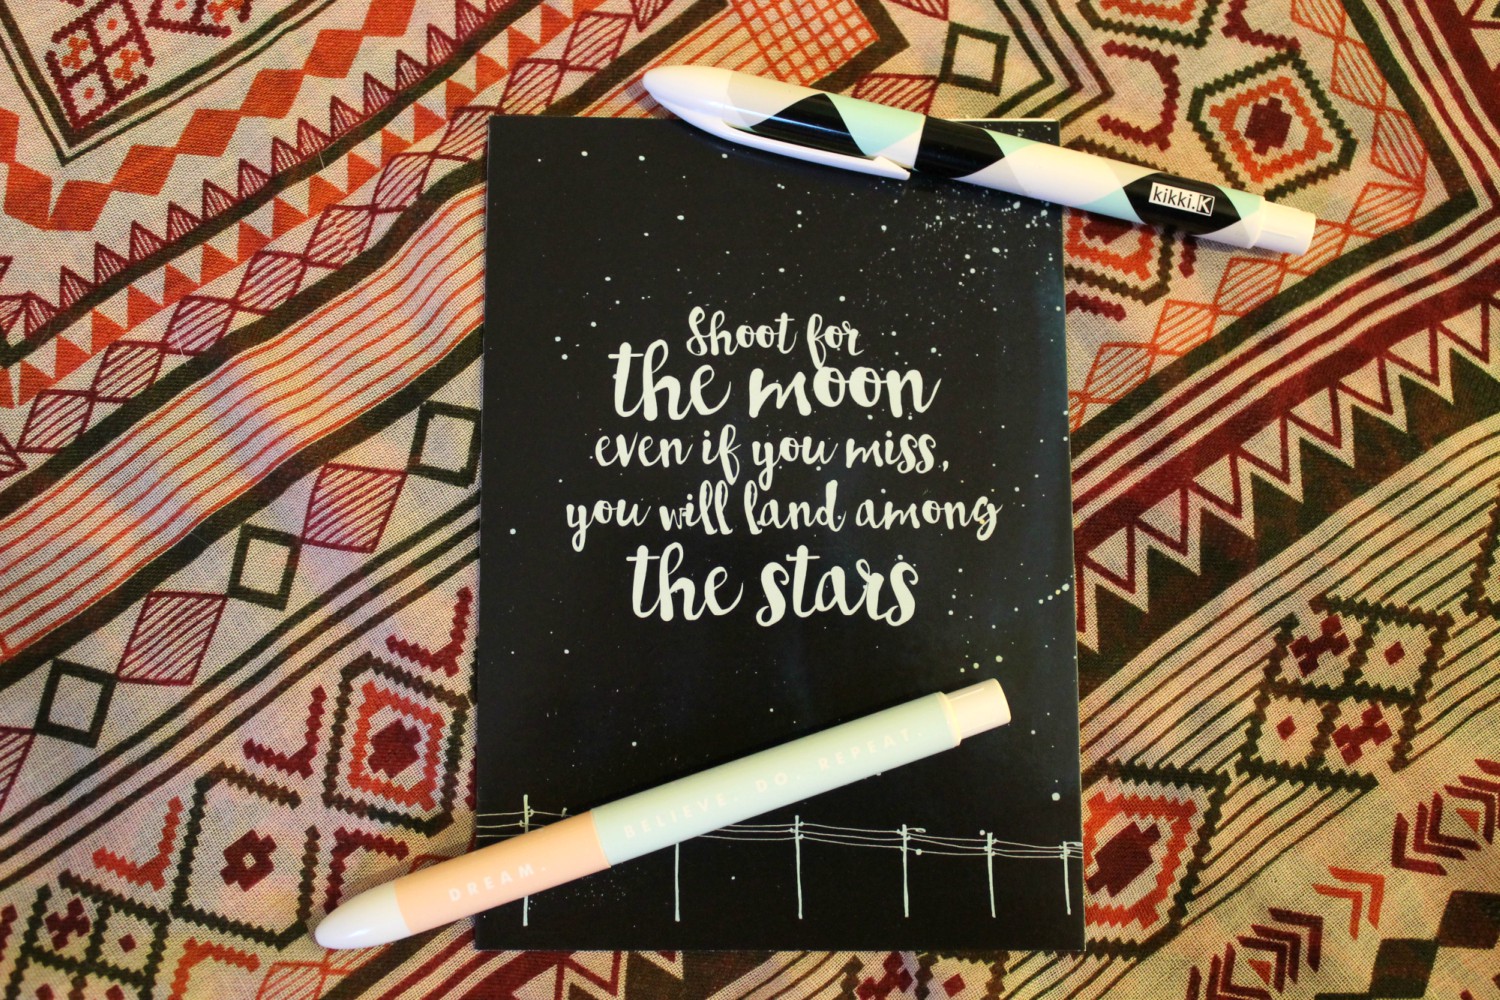 kikki.K
Shoot for
the moon
even if you miss,
you will land among
the stars
DREAM. BELIEVE. DO. REPEAT.